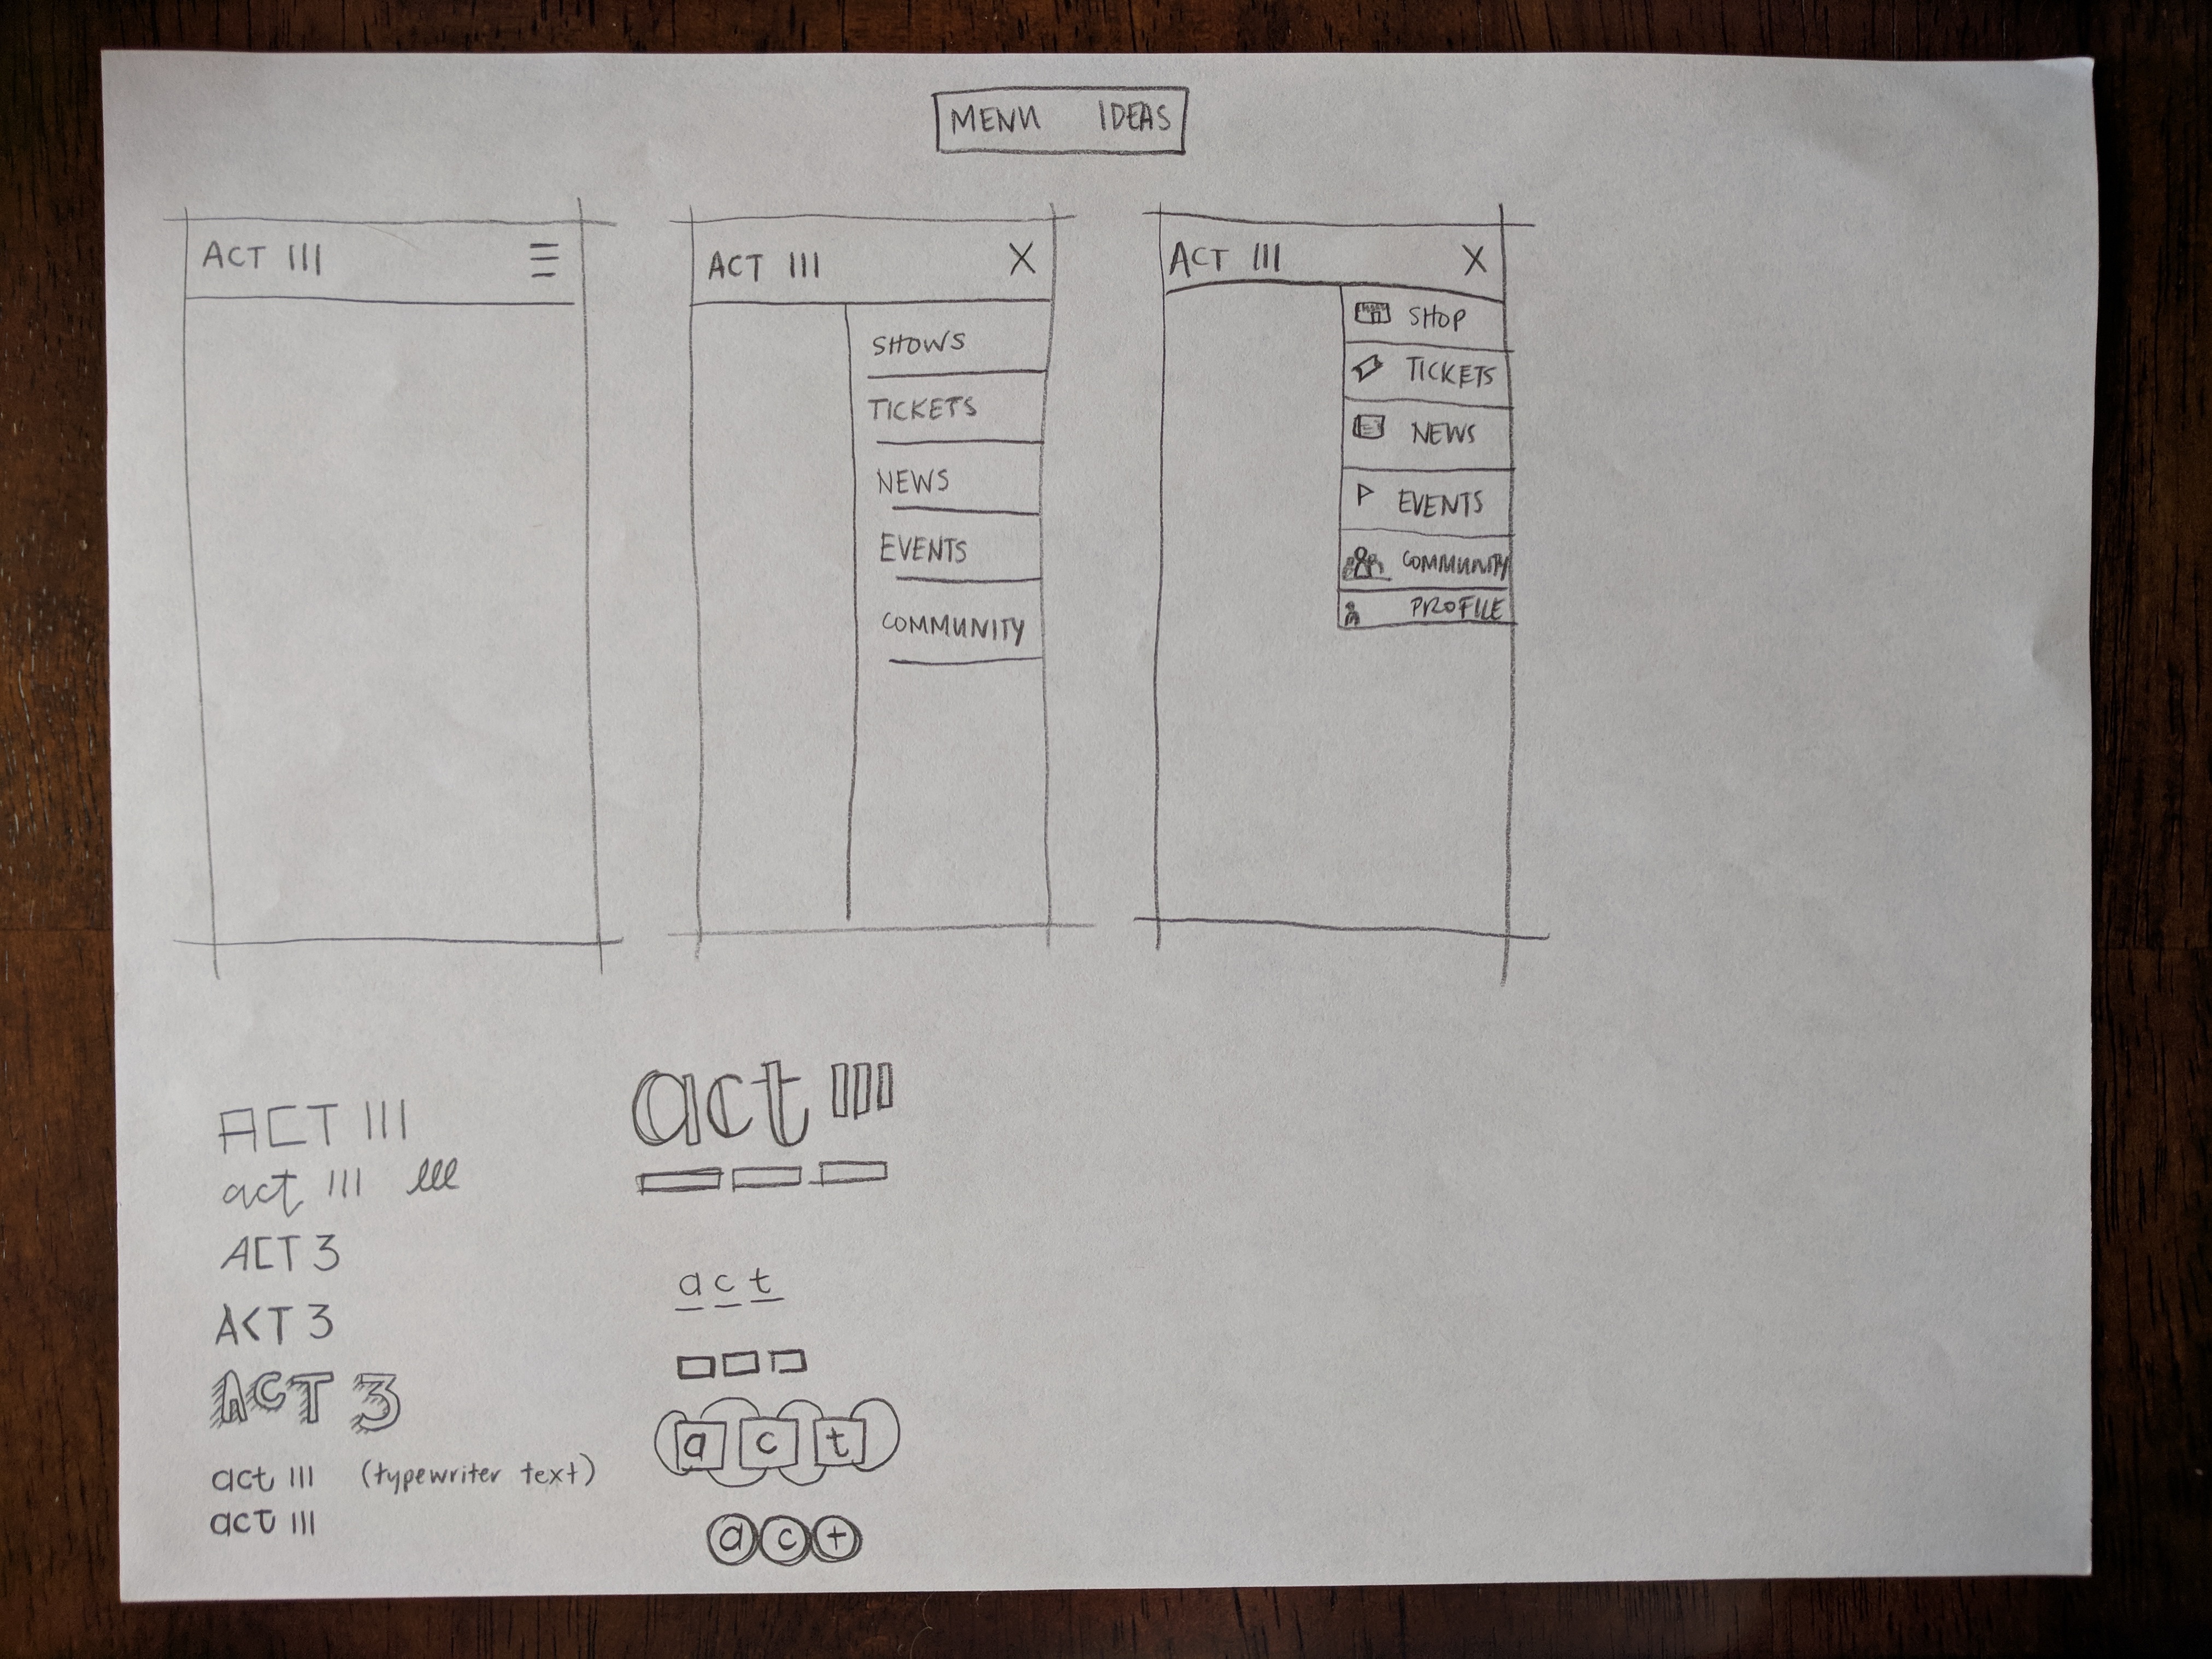 MENU IDEAS
ACT III
ACT III X
SHOWS
TICKETS
NEWS
EVENTS
COMMUNITY
ACT III X
SHOP
TICKETS
NEWS
EVENTS
COMMUNITY
PROFILE
ACT III
act III lll
ACT 3
ACT 3
ACT 3
act III (typewriter text)
act III
act III
a c t
a c t
a c t